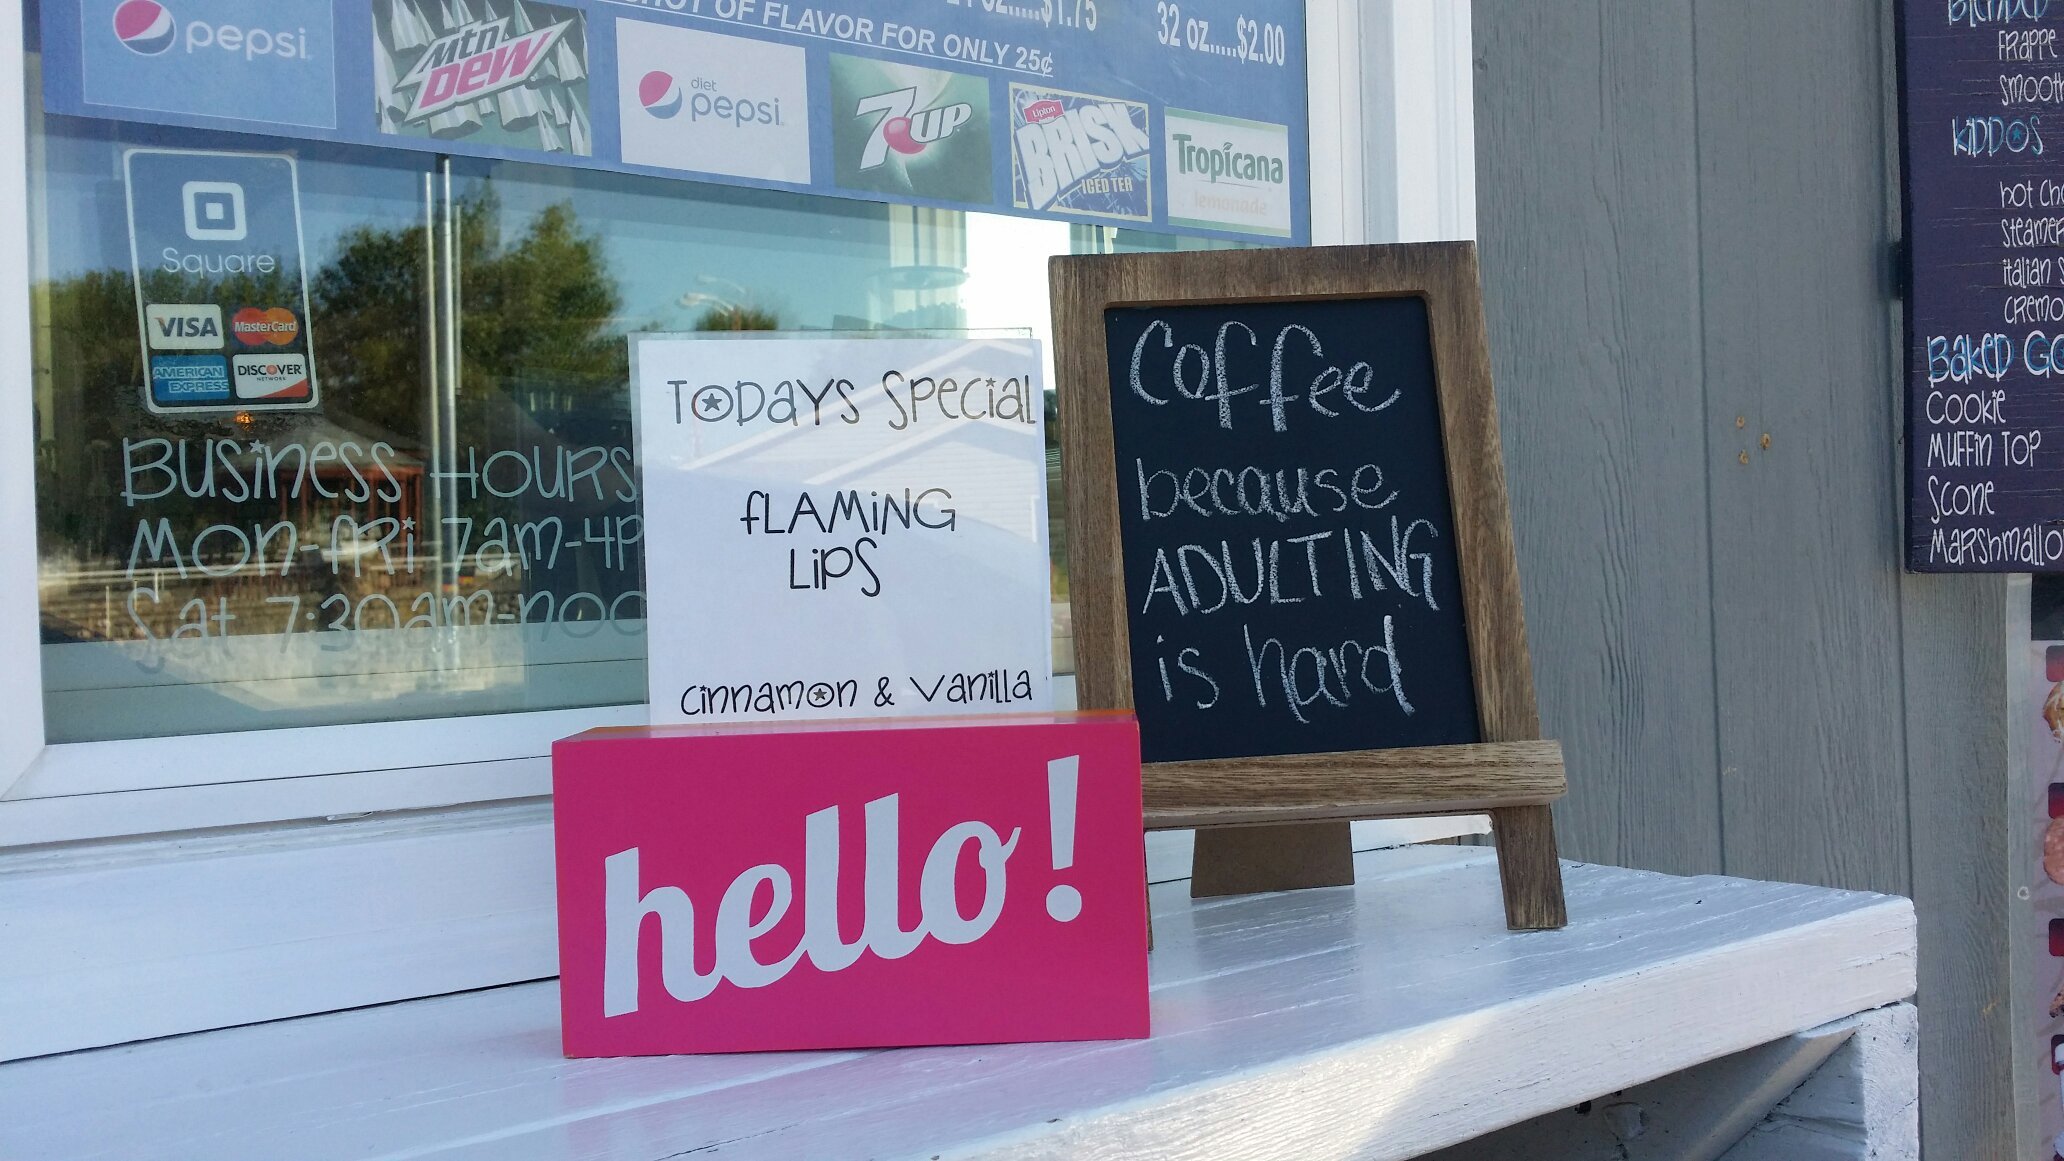 SHOT OF FLAVOR FOR ONLY 25¢
oz.....$1.75
32 oz.....$2.00
pepsi
Mtn
DEW
diet
pepsi
7UP
Lipton
BRISK
ICED TEA
Tropicana
lemonade
Square
VISA
MasterCard
AMERICAN
EXPRESS
DISCOVER
NETWORK
Business Hours
Mon-Fri 7am-4P
Sat 7:30am-noo
TODAYS SPECIAL
FLAMING
LIPS
cinnamon & vanilla
hello!
Coffee
because
ADULTING
is hard
Blended
Frappe
smooth
Kiddos
hot cho
steamer
italian s
cremo
Baked Go
Cookie
Muffin Top
Scone
Marshmallo